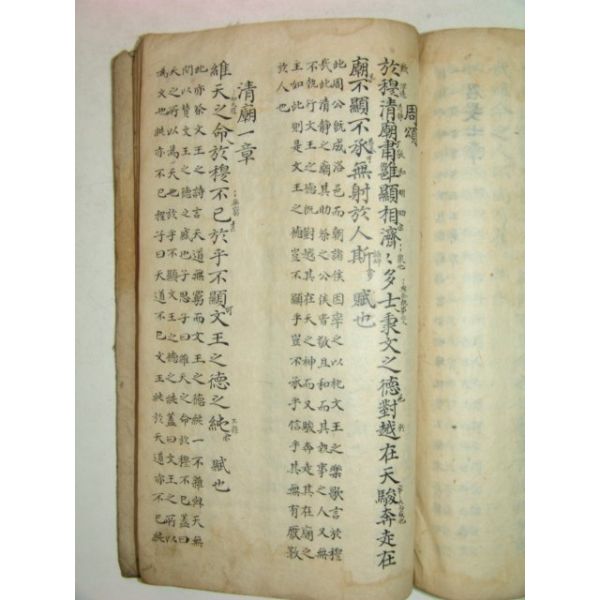 周頌
於穆清廟肅雝顯相濟〻多士秉文之德對越在天駿奔走在
廟不顯不承無射於人斯 賦也
此周公旣成洛邑而朝諸侯因率之以祀文王之樂歌言於穆
哉此清靜之廟其助祭之公侯皆敬且和而其執事之人又無
不執行文王之德旣對越其在天之神而又駿奔走其在廟之
主如此則是文王之德豈不顯乎豈不承乎信乎其無有厭斁
於人也
清廟一章
維天之命於穆不已於乎不顯文王之德之純 賦也
此亦祭文王之詩言天道無窮而文王之德純一不雜與天無
間以贊文王之德之盛也子思子曰維天之命於穆不已蓋曰
天之所以爲天也於乎不顯文王之德之純蓋曰文王之所以
爲文也純亦不已程子曰天道不已文王純於天道亦不已純